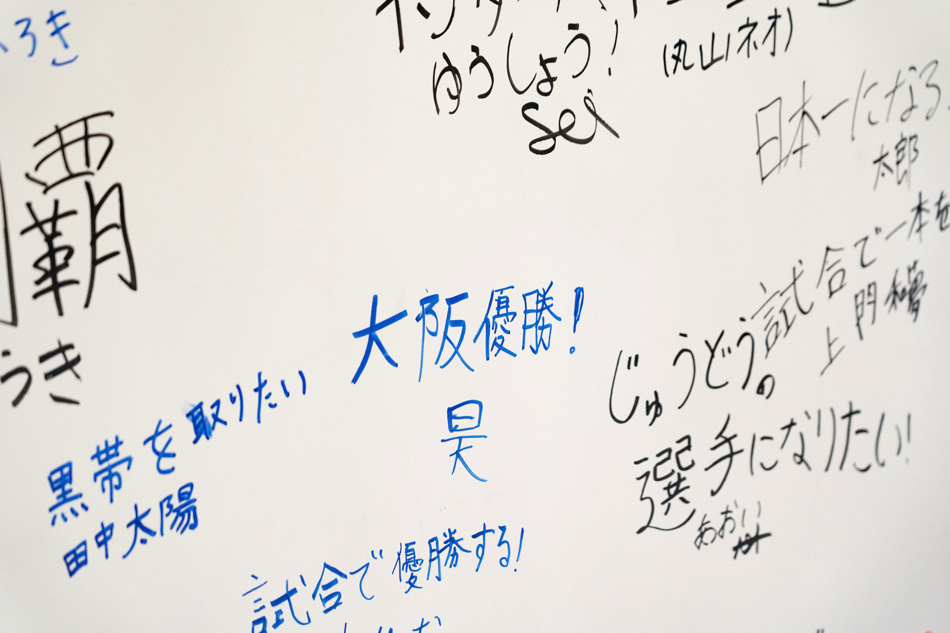 ろき
ゆうしょう!
Sei
(丸山ネオ)
日本一になる
太郎
覇
うき
大阪優勝!
昊
試合で一本を
上門
じゅうどうの
選手になりたい!
あおい
黒帯を取りたい
田中太陽
試合で優勝する!